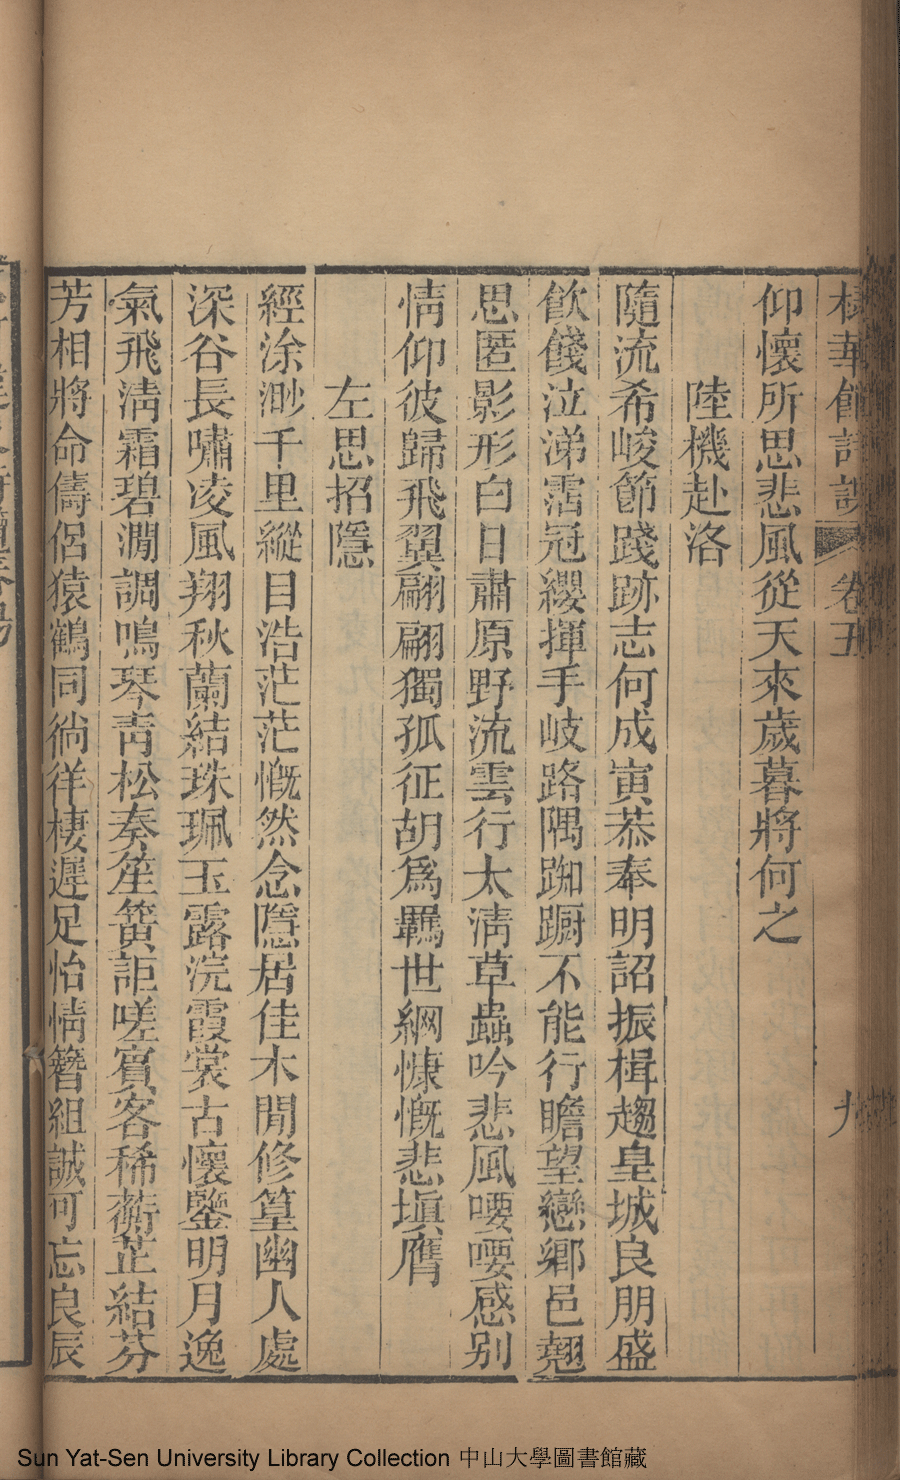 華館詩 卷五 九
仰懷所思悲風從天來歲暮將何之
陸機赴洛
隨流希峻節踐跡志何成寅恭奉明詔振楫趨皇城良朋盛
飲餞泣涕霑冠纓揮手岐路隅踟蹰不能行瞻望戀鄉邑翹
思匿影形白日肅原野流雲行太清草蟲吟悲風喓喓感别
情仰彼歸飛翼翩翩獨孤征胡爲羈世網慷慨悲塡膺
左思招隱
經涂渺千里縱目浩茫茫慨然念隱居佳木閒修篁幽人處
深谷長嘯凌風翔秋蘭結珠珮玉露浣霞裳古懷鑒明月逸
氣飛淸霜碧澗調鳴琴靑松奏笙簧詎嗟賓客稀蘅芷結芬
芳相將命儔侶猿鶴同徜徉棲遲足怡情簪組誠可忘良辰
Sun Yat-Sen University Library Collection 中山大學圖書館藏